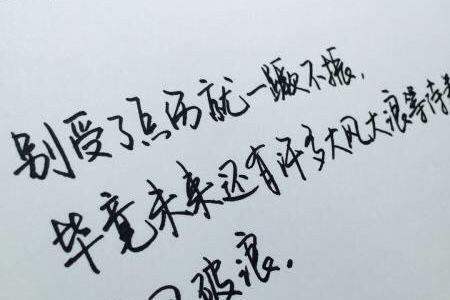 别受了点伤就一蹶不振，
毕竟未来还有许多大风大浪等待着
破浪．